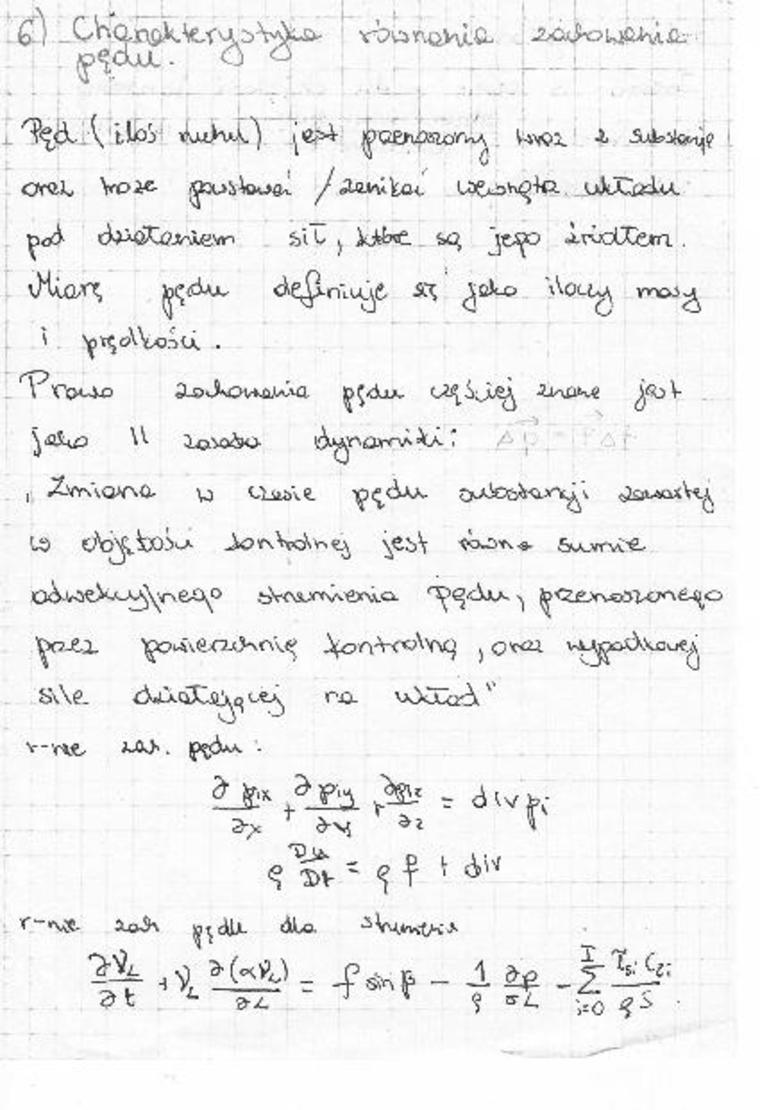 6) Charakterystyka równania zachowania
pędu.
Pęd (ilość ruchu) jest przenoszony wraz z substancją
oraz może powstawać / zanikać wewnątrz układu
pod działaniem sił, które są jego źródłem.
Miarę pędu definiuje się jako iloczyn masy
i prędkości.
Prawo zachowania pędu częściej znane jest
jako II zasada dynamiki:
"Zmiana w czasie pędu substancji zawartej
w objętości kontrolnej jest równa sumie
adwekcyjnego strumienia pędu, przenoszonego
przez powierzchnię kontrolną, oraz wypadkowej
sile działającej na układ"
r-nie zach. pędu:
∂p_ix/∂x + ∂p_iy/∂y + ∂p_iz/∂z = div p_i
ρ Du/Dt = ρ f + div
r-nie zach pędu dla strumienia
∂V_L/∂t + V_L ∂(αV_L)/∂L = f sin β − 1/ρ ∂p/∂L − Σ_{i=0}^{I} τ_si C_zi / ρS